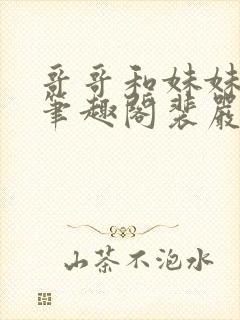 哥哥和妹妹
笔趣阁裴严
山茶不泡水